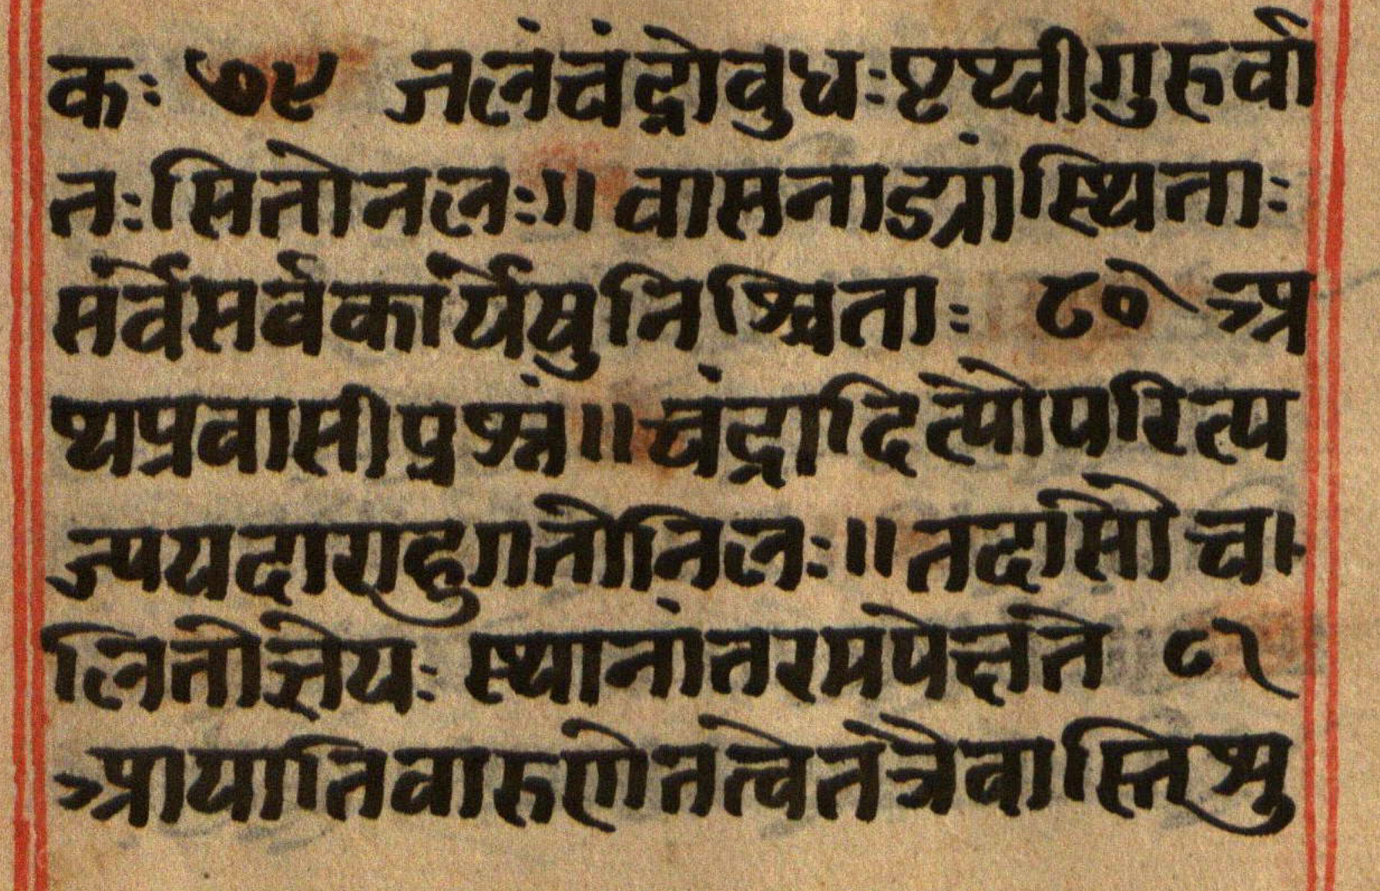 कः ७९ जलंचंद्रोबुधःपृथ्वीगुरुर्वा
तःसितोनलः॥ वामनाड्यांस्थिताः
सर्वेसर्वकार्येषुनिश्चिताः ८० अ
थप्रवासीप्रश्नं॥चंद्रादित्योपरित्य
ज्ययदाराहुगतोनिलः॥तदासौ चा
लितोज्ञेयः स्थानांतरमपेक्षते ८१
आयातिवारुणेतत्वेतत्रैवास्तिशु